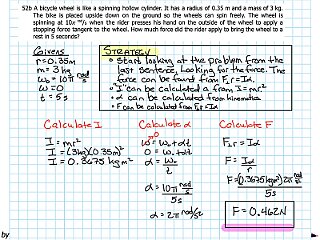 52b A bicycle wheel is like a spinning hollow cylinder. It has a radius of 0.35 m and a mass of 3 kg.
The bike is placed upside down on the ground so the wheels can spin freely. The wheel is
spinning at 10π rad/s when the rider presses his hand on the outside of the wheel to apply a
stopping force tangent to the wheel. How much force did the rider apply to bring the wheel to a
rest in 5 seconds?
GIVENS
r=0.35m
m=3kg
ω₀=10π rad/s
ω=0
t=5s
STRATEGY
• Start looking at the problem from the
last sentence, looking for the force. The
force can be found from F⊥r=Iα.
• I can be calculated from I=mr²
• α can be calculated from kinematics
• F can be calculated from F⊥r=Iα
Calculate I
I=mr²
I=(3kg)(0.35m)²
I=0.3675 kg m²
Calculate α
ω=ω₀+αt
0=ω₀+αt
α=ω₀/t
α=10π rad/s / 5s
α=2π rad/s²
Calculate F
F⊥r=Iα
F=Iα/r
5s
F=0.462N
by